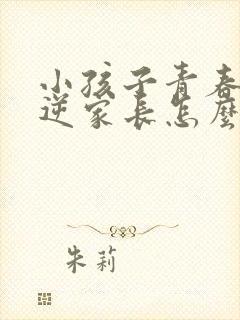 小孩子青春
逆家长怎麼
朱莉